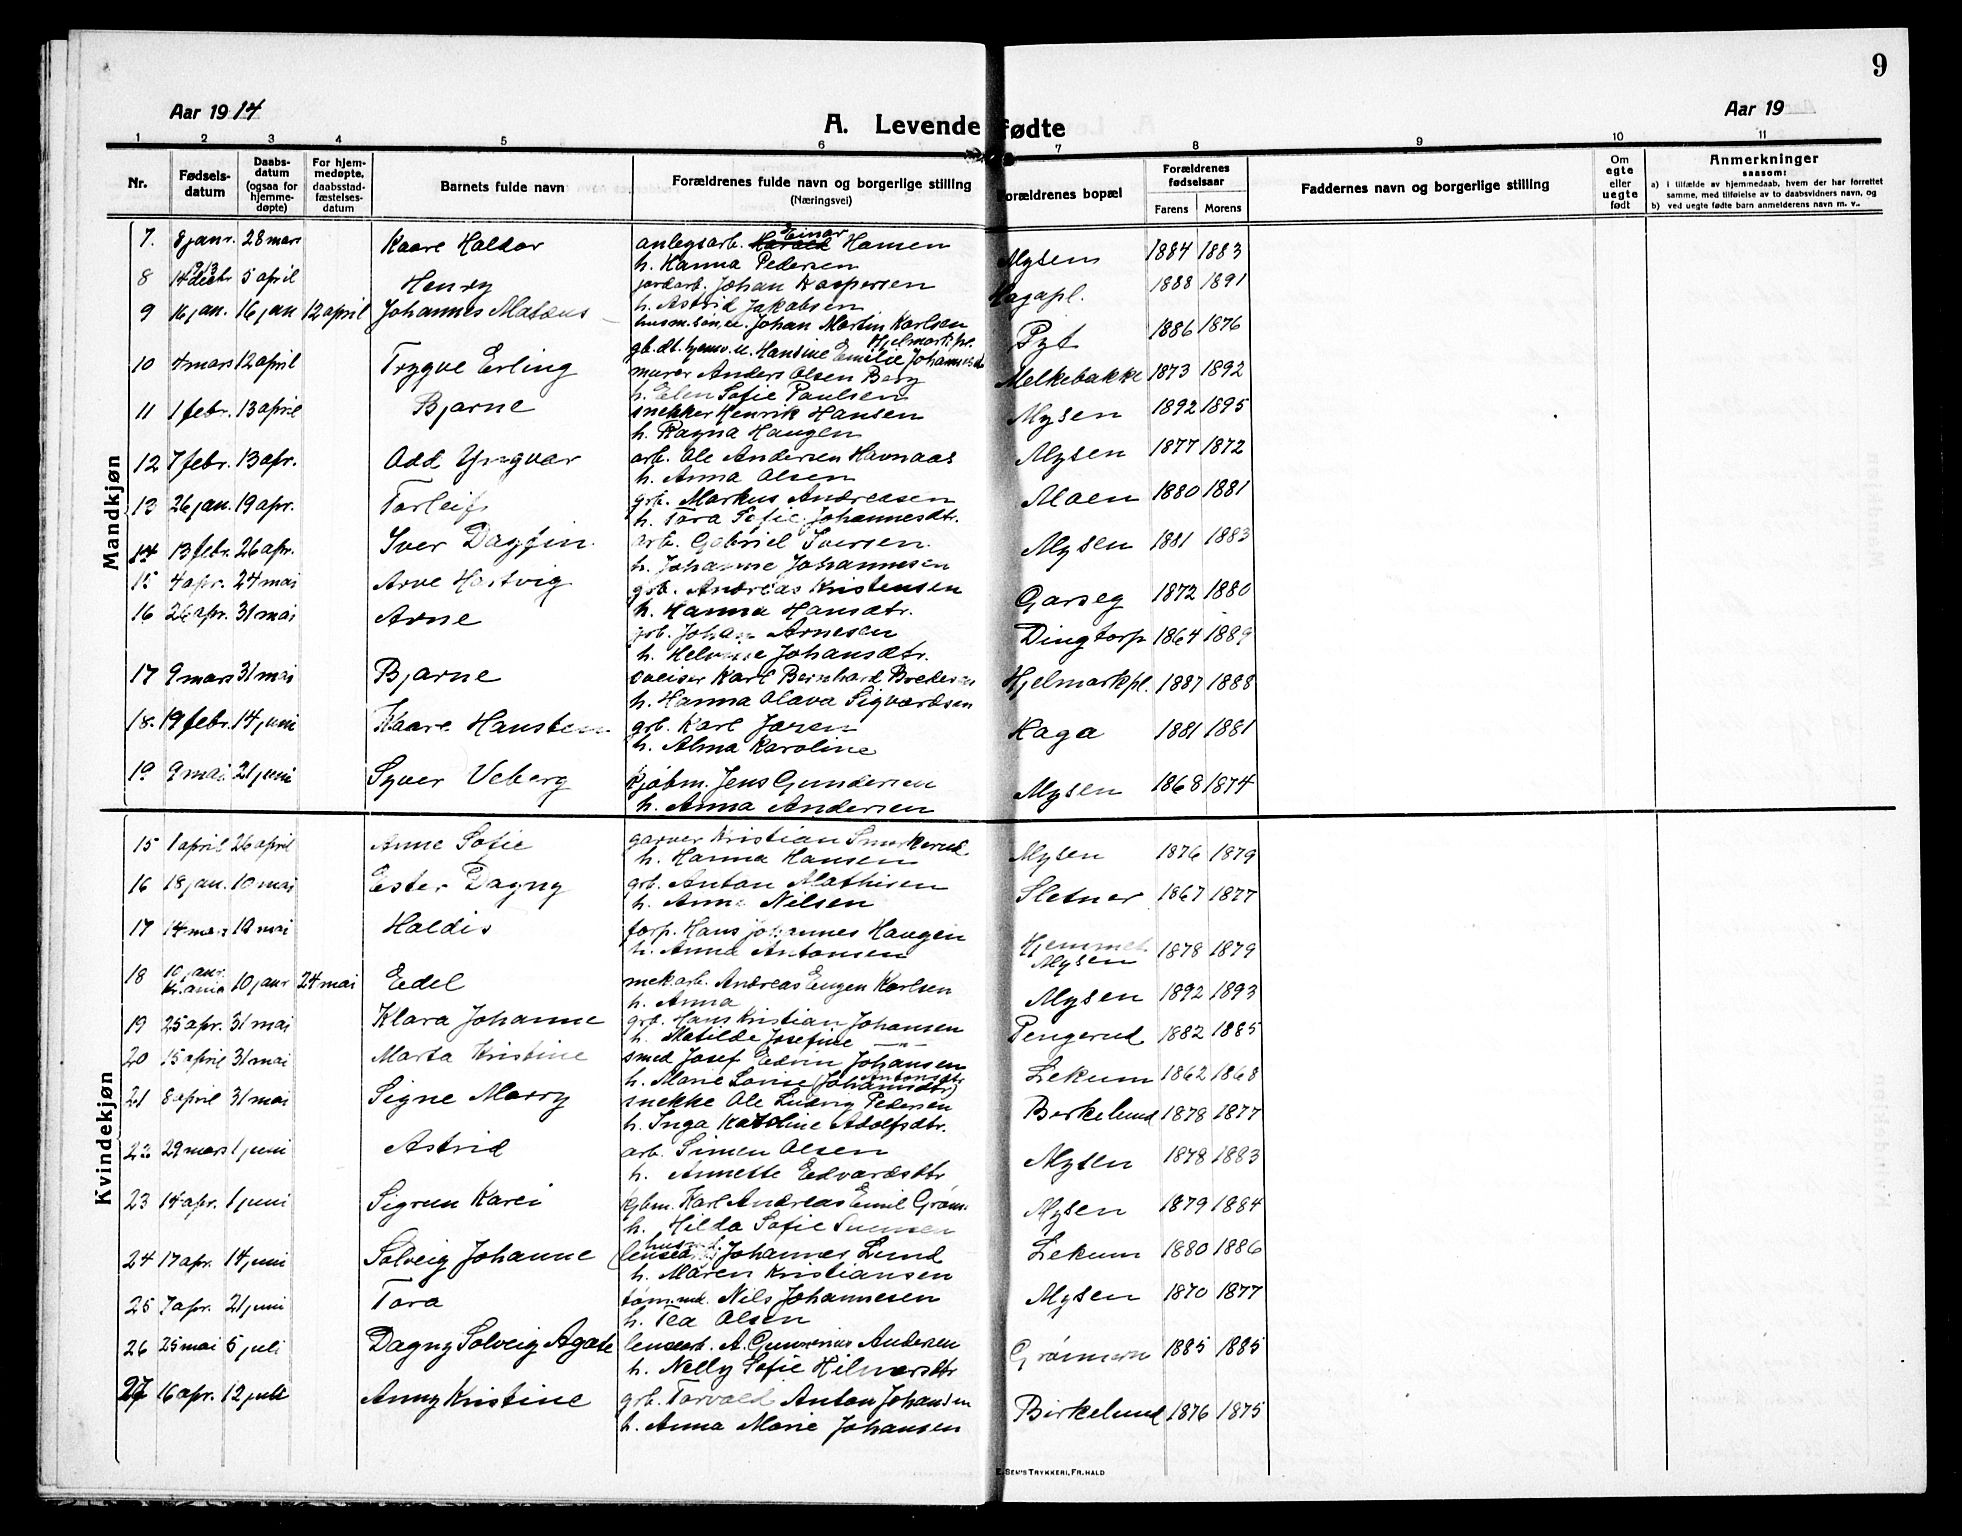 9
Aar 1914
A. Levende fødte
Aar 19
1 2 3 4 5 6 7 8 9 10 11
Nr.
Fødsels-
datum
Daabs-
datum
(ogsaa for
hjemme-
døpte)
For hjem-
medøpte.
daabsstad-
fæstelses-
datum
Barnets fulde navn
Forældrenes fulde navn og borgerlige stilling
(Næringsvei)
Forældrenes bopæl
Forældrenes
fødselsaar
Farens Morens
Faddernes navn og borgerlige stilling
Om
egte
eller
uegte
født
Anmerkninger
saasom:
a) i tilfælde av hjemmedaab, hvem der har forrettet
samme, med tilføielse av to daabsvidners navn, og
b) ved uegte fødte barn anmelderens navn m. v..
Mandkjøn
7. 8 janr. 28 mars Kaare Haldor anlegsarb. Einar Hansen Mysen 1884 1883
h. Hanna Pedersen
8 14 decbr 5 april Henry jordarb. Johan Kaspersen Hagapl. 1888 1891
h. Astrid Jakobsen
9 16 jan. 16 jan 12 april Johannes husm.søn u. Johan Martin Karlsen Pyt 1886 1876
Hjelmark.pl.
gb.dt. hjemv. u. Hansine Emilie
10 4 mars 12 april Trygve Erling murer Anders Olsen Berg Melkebakke 1873 1892
h. Elen Sofie Paulsen
11 1 febr. 13 april Bjarne snekker Henrik Hansen Mysen 1892 1895
h. Ragna Haugen
12 7 febr. 13 apr. Odd Yngvar arb. Ole Andersen Havnaas Mysen 1877 1872
h. Anna Olsen
13 26 jan. 19 apr. Torleif grb. Markus Andreasen Moen 1880 1881
h. Tora Sofie Johannesdt.
14 13 febr. 26 apr. Iver Dagfin arb. Gabriel Iversen Mysen 1881 1883
h. Johanne Johannesen
15 4 apr. 24 mai Arve Hartvig grb. Andreas Kristensen Garseg 1872 1880
h. Hanna Hansdtr.
16 26 apr. 31 mai Arne grb. Johan Arnesen Dingtorp 1864 1889
h. Helvine Johansdtr.
17 9 mars 31 mai Bjarne sveiser Karl Bernhard Bredesen Hjelmarkpl. 1887 1888
h. Hanna Olava Sigvardsen
18. 19 febr. 14 juni Kaare Hansten grb. Karl Jazen Haga 1881 1881
h. Alma Karoline
19 9 mai 21 juni Syver Veberg kjøbm. Jens Gundersen Mysen 1868 1874
h. Anna Andersen
Kvindekjøn
15 1 april 26 april Anne Sofie garver Kristian Smerkerud Mysen 1876 1879
h. Hanna Hansen
16 18 jan. 10 mai Ester Dagny grb. Anton Mathisen Sletner 1867 1877
h. Anna Nilsen
17 14 mars 10 mai Haldis torp. Hans Johannes Haugen Hjemmet 1878 1879
h. Anna Antonsen Mysen
18 10 janr. 10 janr 24 mai Edel mek.arb. Andreas Eugen Karlsen Mysen 1892 1893
Kr.ania h. Anna
19 25 apr. 31 mai Klara Johanne grb. Hans Kristian Johansen Pengerud 1882 1885
h. Matilde Josefine —"—
20 15 april 31 mai Marta Kristine smed Josef Edvin Johansen Lekum 1862 1868
h. Marie Lovise (Johannsdtr) Antonsdtr
21 8 april 31 mai Signe Marry snekke Ole Ludvig Pedersen Birkelund 1878 1877
h. Inga Karoline Adolfsdtr.
22 29 mars 1 juni Astrid arb. Simen Olsen Mysen 1878 1883
h. Annette Edvardsdtr
23 14 apr. 1 juni Sigrun Karei kjbm. Karl Andreas Emil Grøm. Mysen 1879 1884
h. Hilda Sofie
24 17 apr. 14 juni Solveig Johanne Johannes Lund Lekum 1880 1886
h. Maren Kristiansen
25 7 apr. 21 juni Tora tøm.md. Nils Johannesen Mysen 1870 1877
h. Tea Olsen
26 25 mai 5 juli Dagny Solveig Agate lensearb. A. Gunerius Andersen 1885 1885
h. Nelly Sofie Hilmersdtr
27 16 apr. 12 juli Anny Kristine grb. Torvald Anton Johansen Birkelund 1876 1875
h. Anna Marie Johansen
E. Sem's Trykkeri, Fr.hald